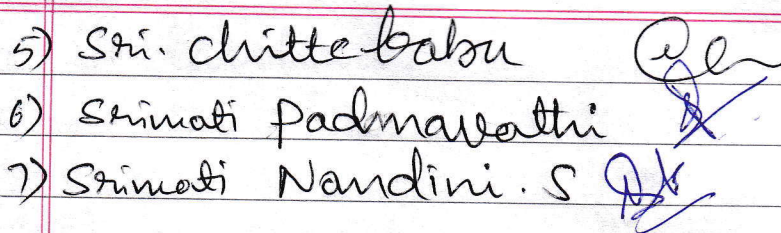 5) Sri. chitte babu
6) Srimati Padmavathi
7) Srimati Nandini. S